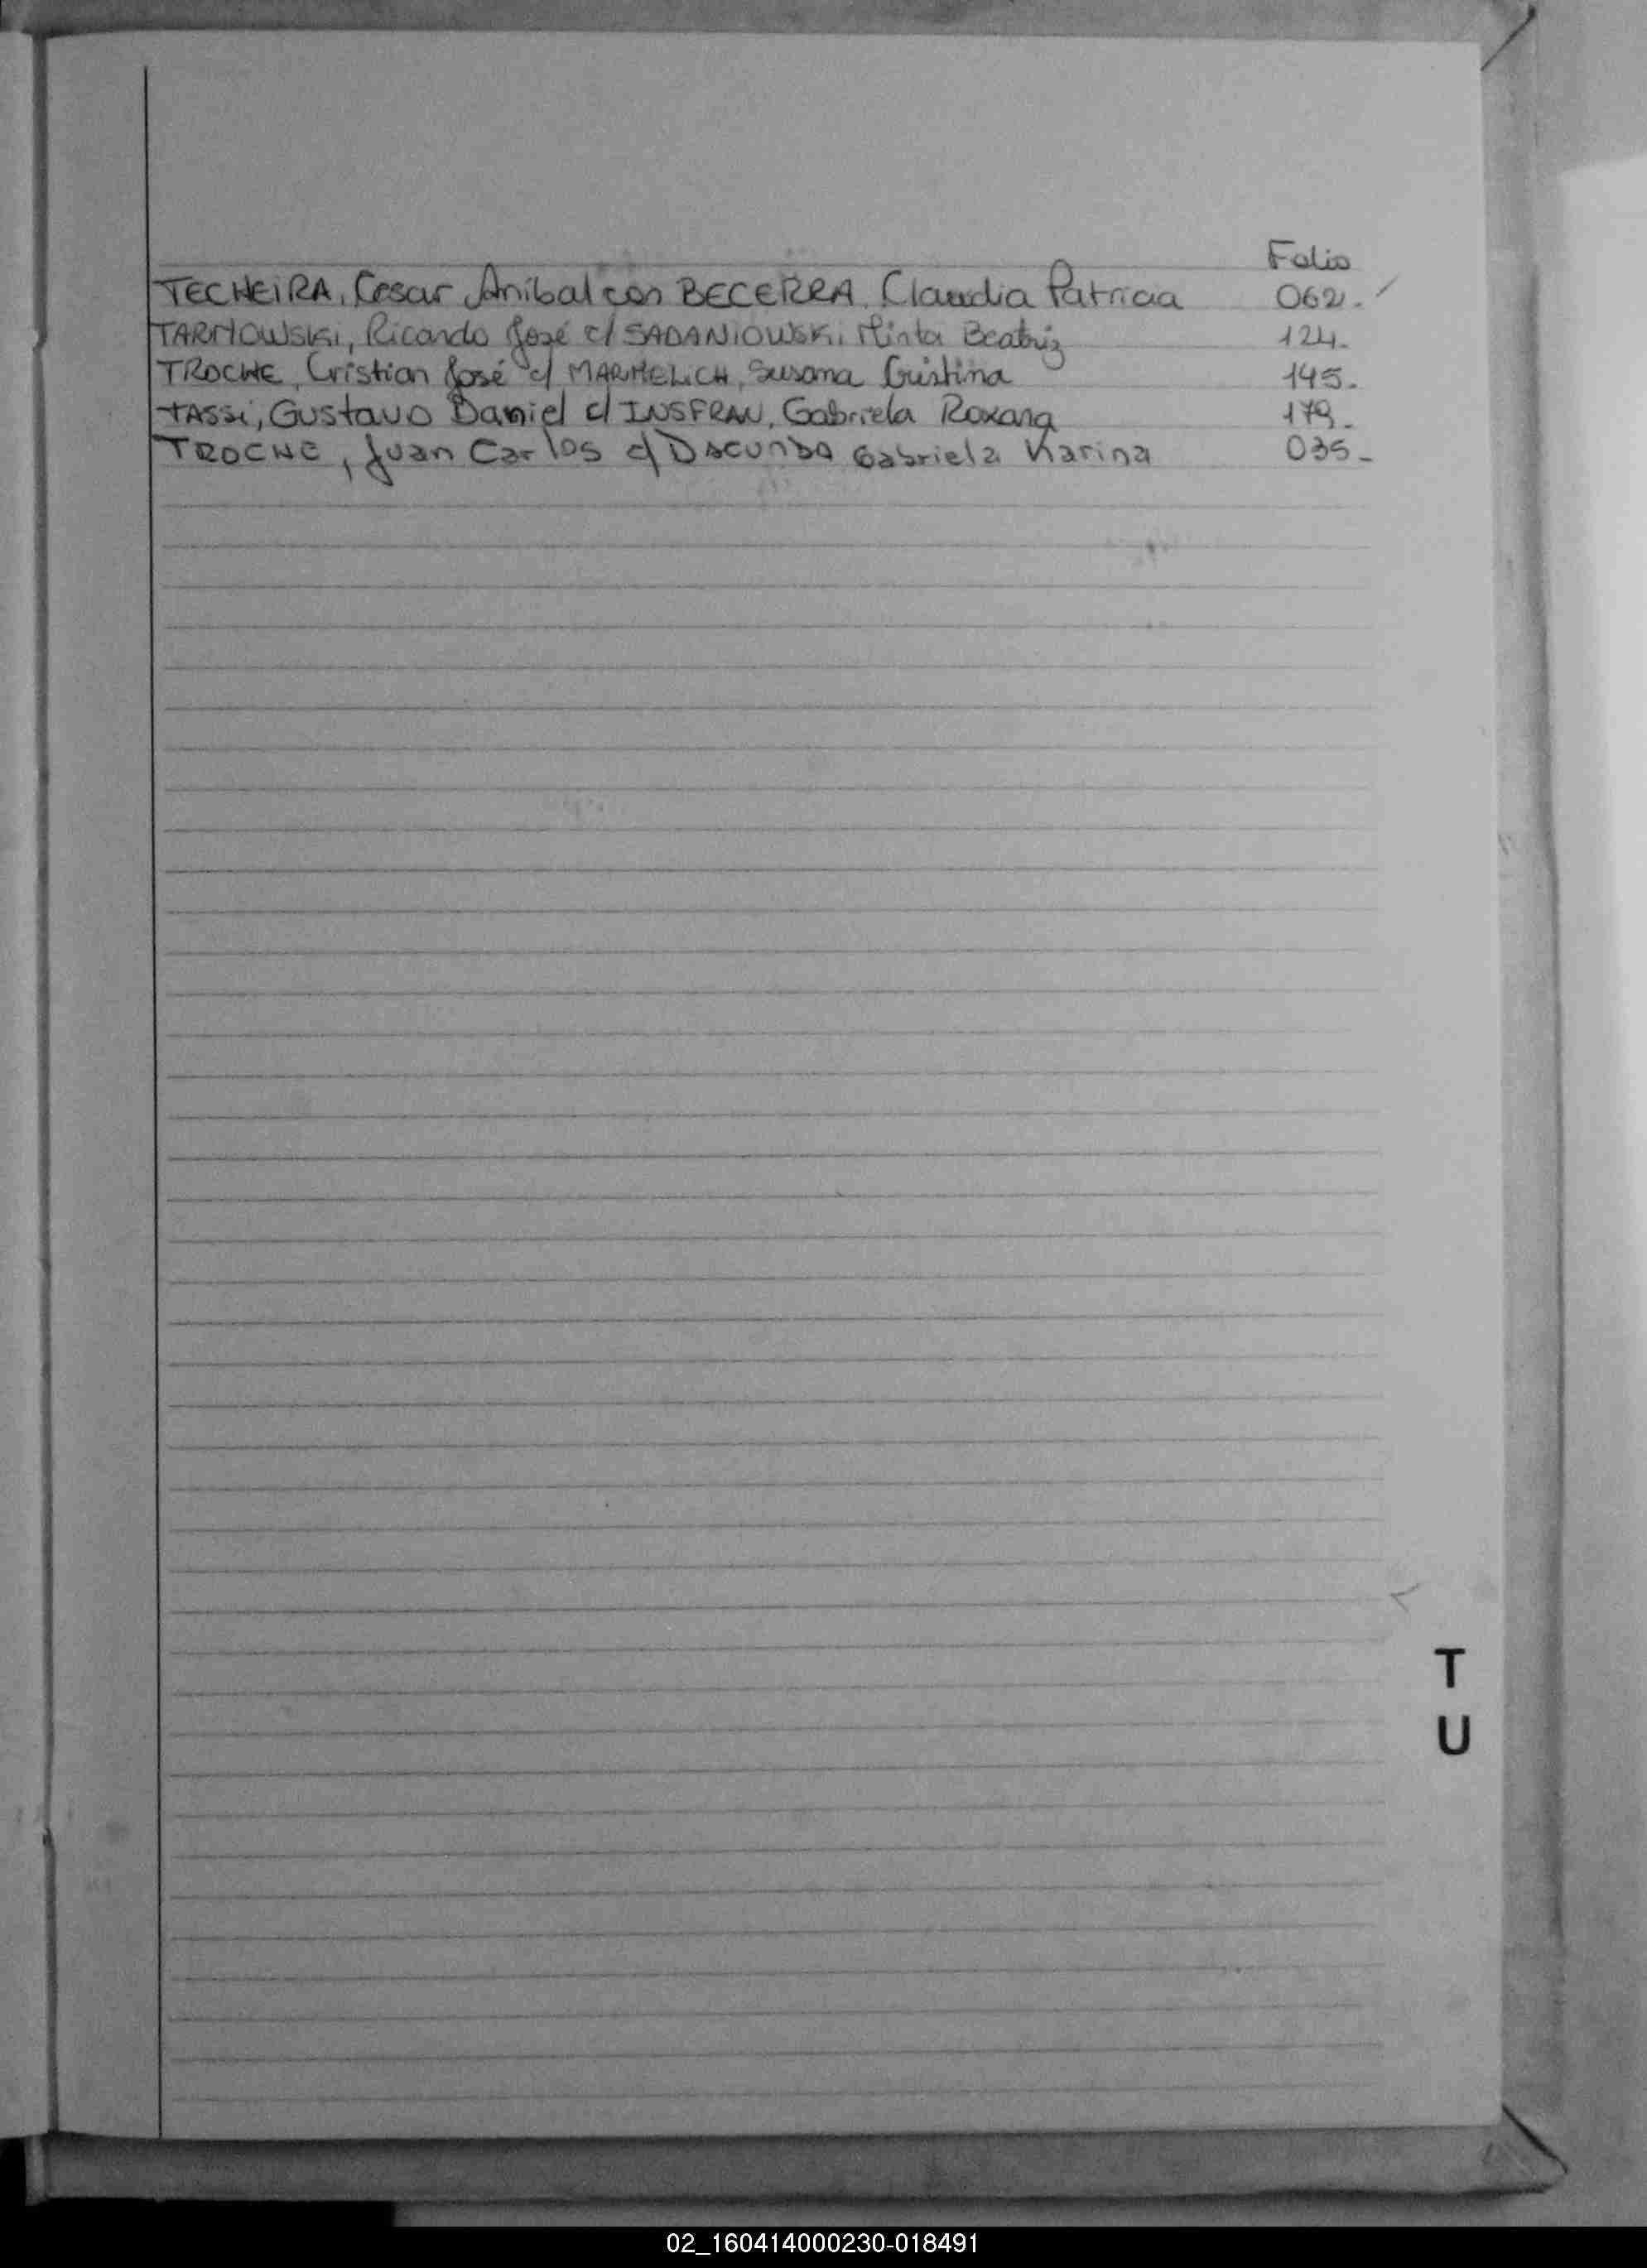 Folio
TECHEIRA, Cesar Anibal con BECERRA, Claudia Patricia 062.-
TARNOWSKI, Ricardo José c/ SADANIOWSKI Mirta Beatriz 124.-
TROCHE, Cristian José c/ MARMELICH, Susana Cristina 145.-
TASSI, Gustavo Daniel c/ INSFRAN, Gabriela Roxana 179.-
TROCHE, Juan Carlos c/ DACUNDA Gabriela Karina 035-
T
U
02_160414000230-018491